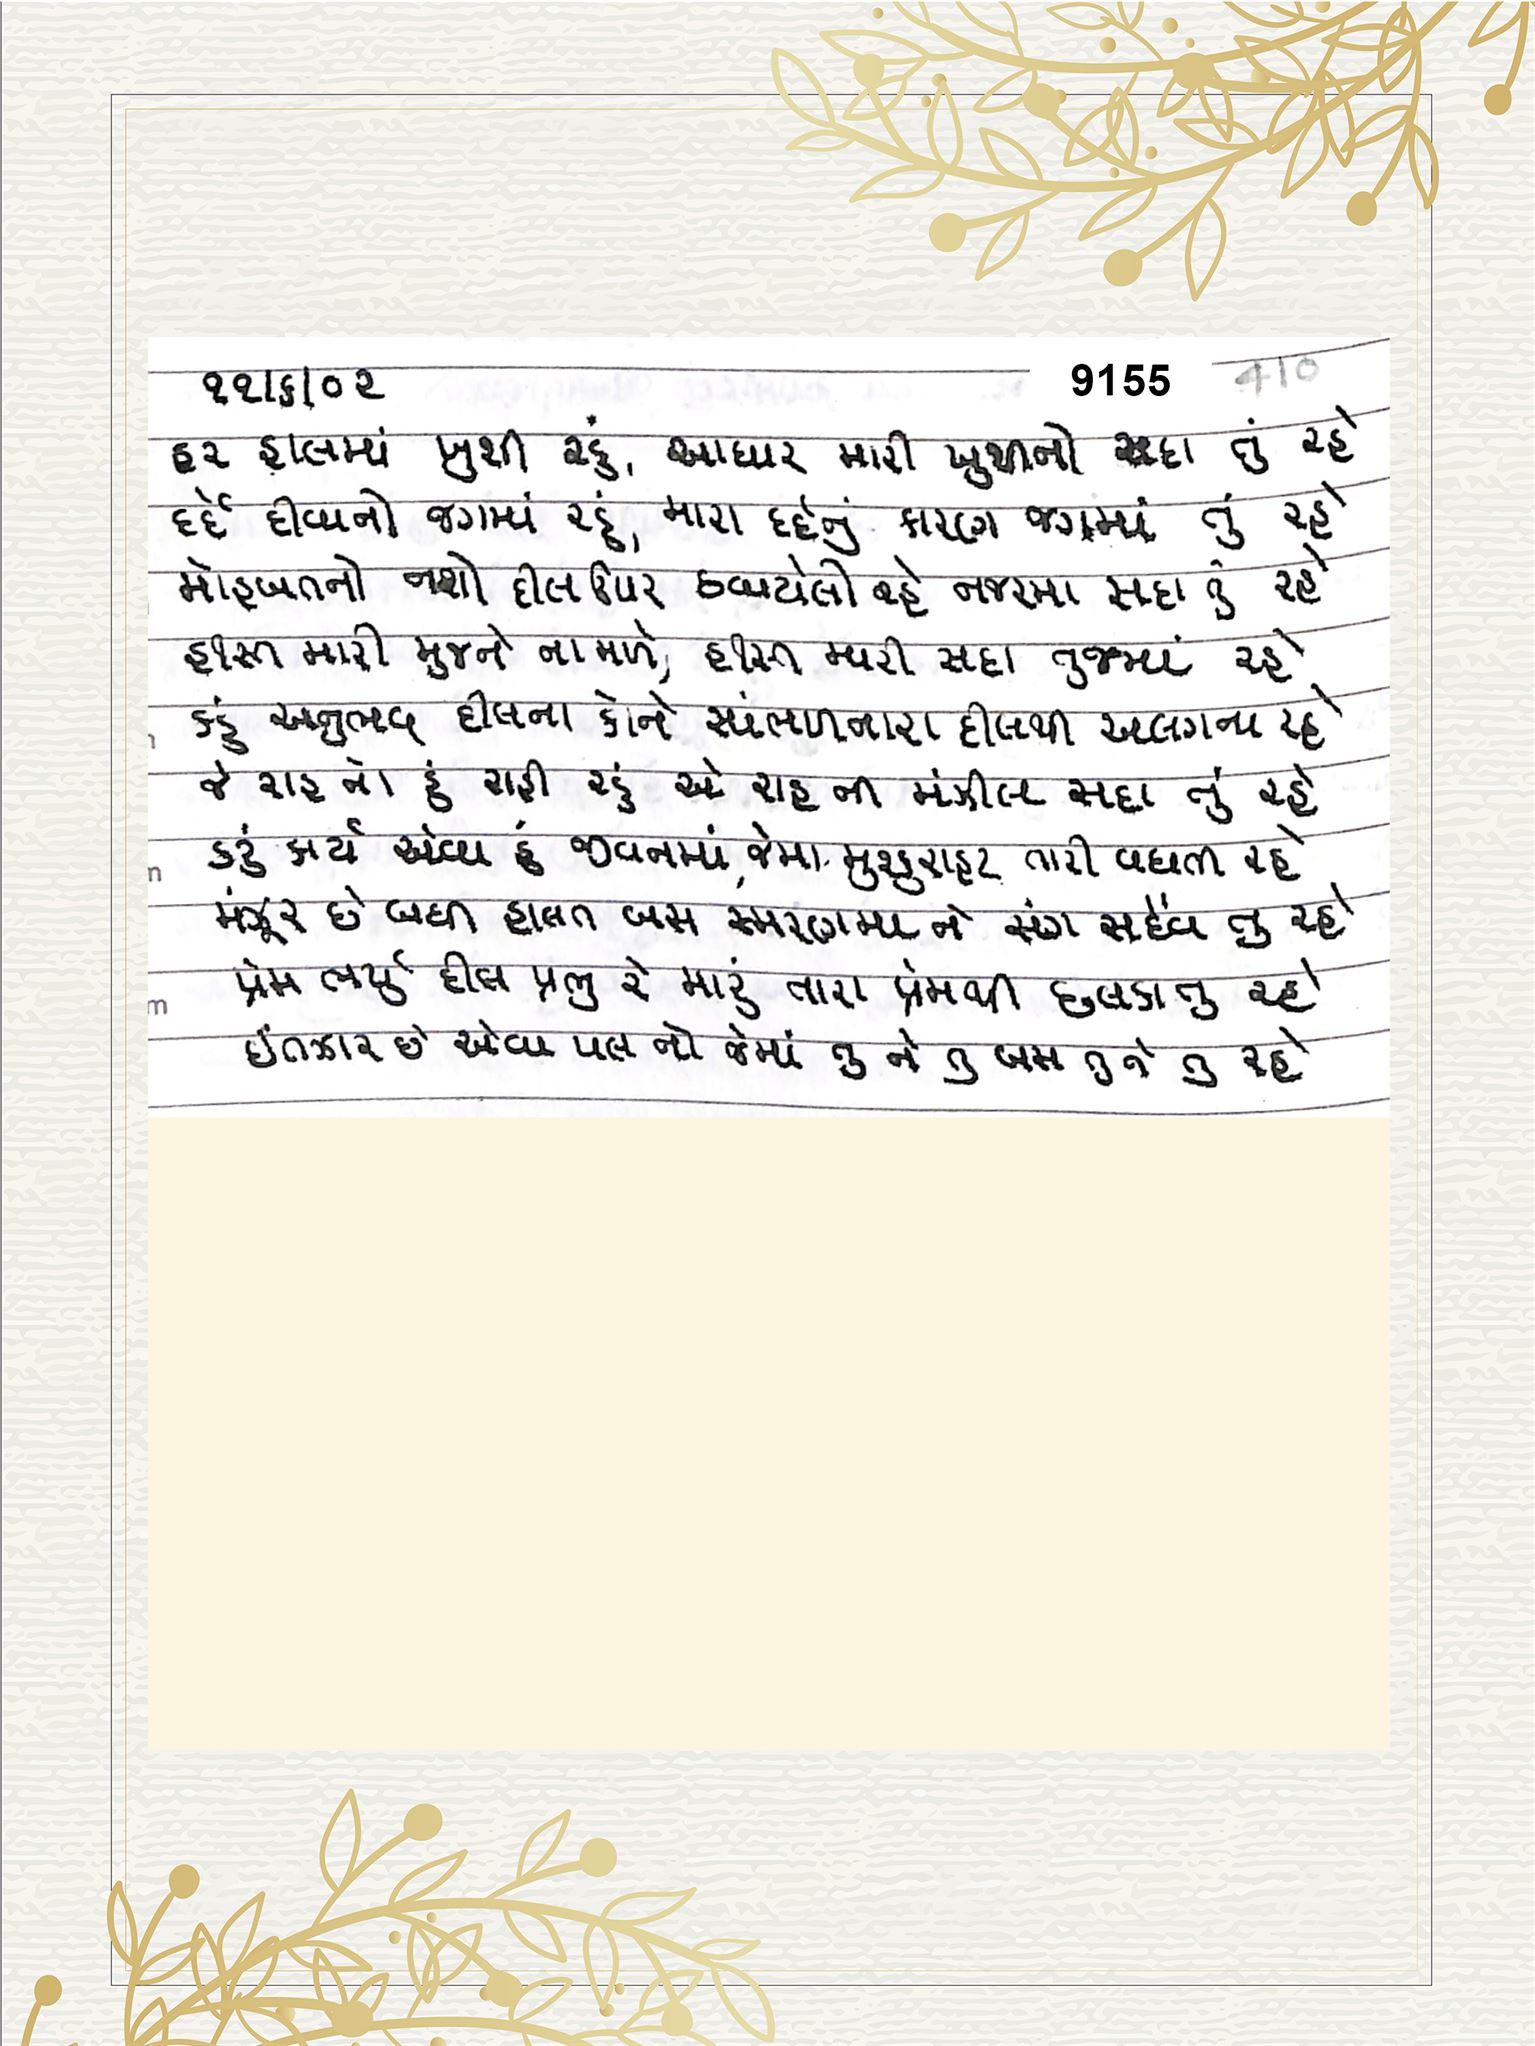 ૨૨/૬/૦૨
9155
410
હર હાલમાં ખુશી રહું, આધાર મારી ખુશીનો સદા તું રહે
દર્દે દીવાનો જગમાં રહું, મારા દર્દનું કારણ જગમાં તું રહે
મોહબતનો નશો દીલ ઉપર રહે નજરમા સદા તું રહે
મારી મુજને ના મળે, મારી સદા તુજમાં રહે
કહું અનુભવ દીલના કોને સાંભળનારા દીલથી અલગ ના રહે
જે રાહ નો હું રાહી રહું એ રાહ ની મંઝીલ સદા તું રહે
કરું કાર્ય એવા હું જીવનમાં, જેમા મુશ્કુરાહટ તારી વધતી રહે
મંઝૂર છે બધી હાલત બસ સ્મરણમા ને સંગ સદૈવ તુ રહે
પ્રેમ ભર્યું દીલ પ્રભુ રે મારું તારા પ્રેમથી છલકાતુ રહે
ઈંતઝાર છે એવા પલ નો જેમાં તુ ને તુ બસ તુ ને તુ રહે